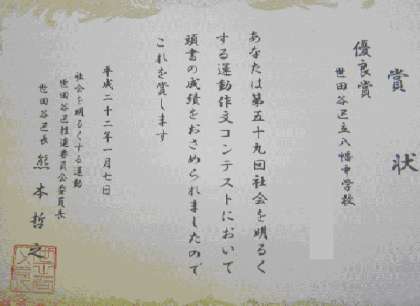 賞状
優良賞
世田谷区立八幡中学校
あなたは第五十九回社会を明るく
する運動作文コンテストにおいて
頭書の成績をおさめられましたので
これを賞します
平成二十二年一月七日
社会を明るくする運動
世田谷区推進委員会委員長
世田谷区長 熊本哲之